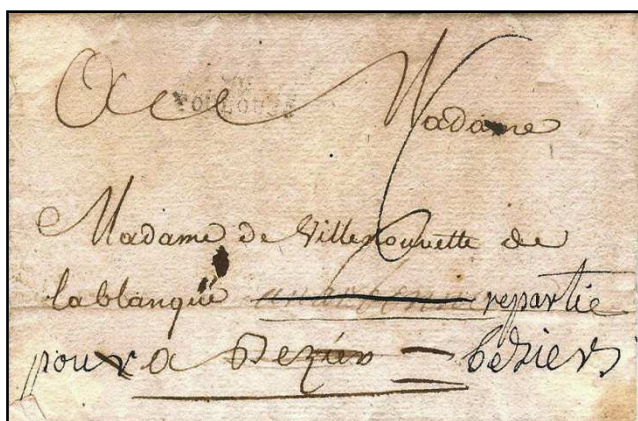 TOULOUSE
A Madame
Madame de Villenouvette de
lablanque repartie
pour a Bezier beziers